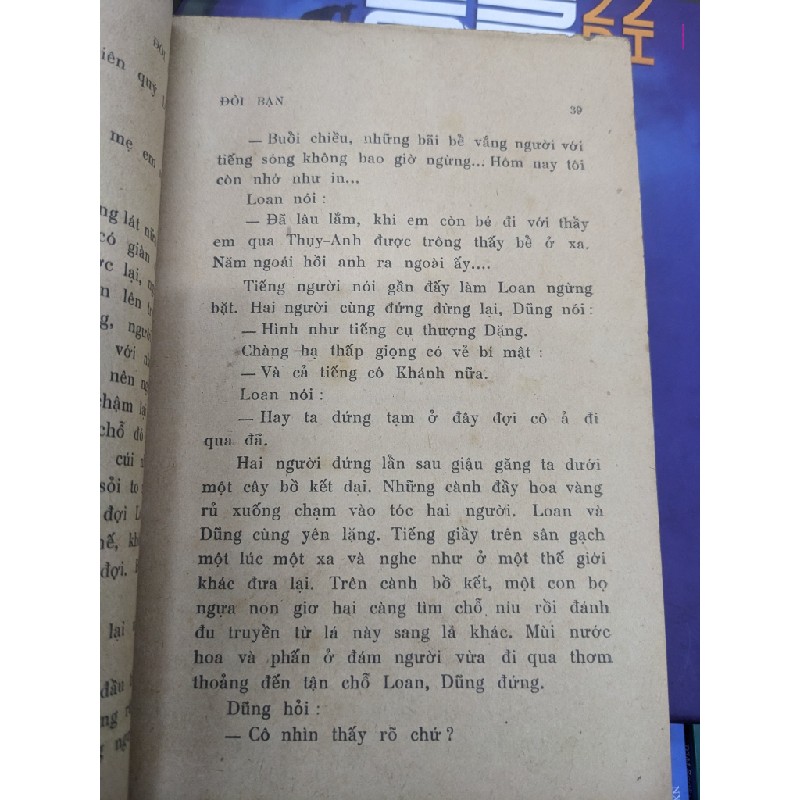 ĐÔI BẠN
39
— Buổi chiều, những bãi bể vắng người với
tiếng sóng không bao giờ ngừng... Hôm nay tôi
còn nhớ như in...
Loan nói :
— Đã lâu lắm, khi em còn bé đi với thầy
em qua Thụy-Anh được trông thấy bể ở xa.
Năm ngoái hồi anh ra ngoài ấy....
Tiếng người nói gần đấy làm Loan ngừng
bặt. Hai người cùng đứng dừng lại, Dũng nói :
— Hình như tiếng cụ thượng Đặng.
Chàng hạ thấp giọng có vẻ bí mật :
— Và cả tiếng cô Khánh nữa.
Loan nói :
— Hay ta đứng tạm ở đây đợi cô ả đi
quá đã.
Hai người đứng lần sau giậu găng ta dưới
một cây bồ kết dại. Những cành đầy hoa vàng
rủ xuống chạm vào tóc hai người. Loan và
Dũng cùng yên lặng. Tiếng giầy trên sân gạch
một lúc một xa và nghe như ở một thế giới
khác đưa lại. Trên cành bồ kết, một con bọ
ngựa non giơ hai càng tìm chỗ níu rồi đánh
đu truyền từ lá này sang lá khác. Mùi nước
hoa và phấn ở đám người vừa đi qua thơm
thoảng đến tận chỗ Loan, Dũng đứng.
Dũng hỏi :
— Cô nhìn thấy rõ chứ ?